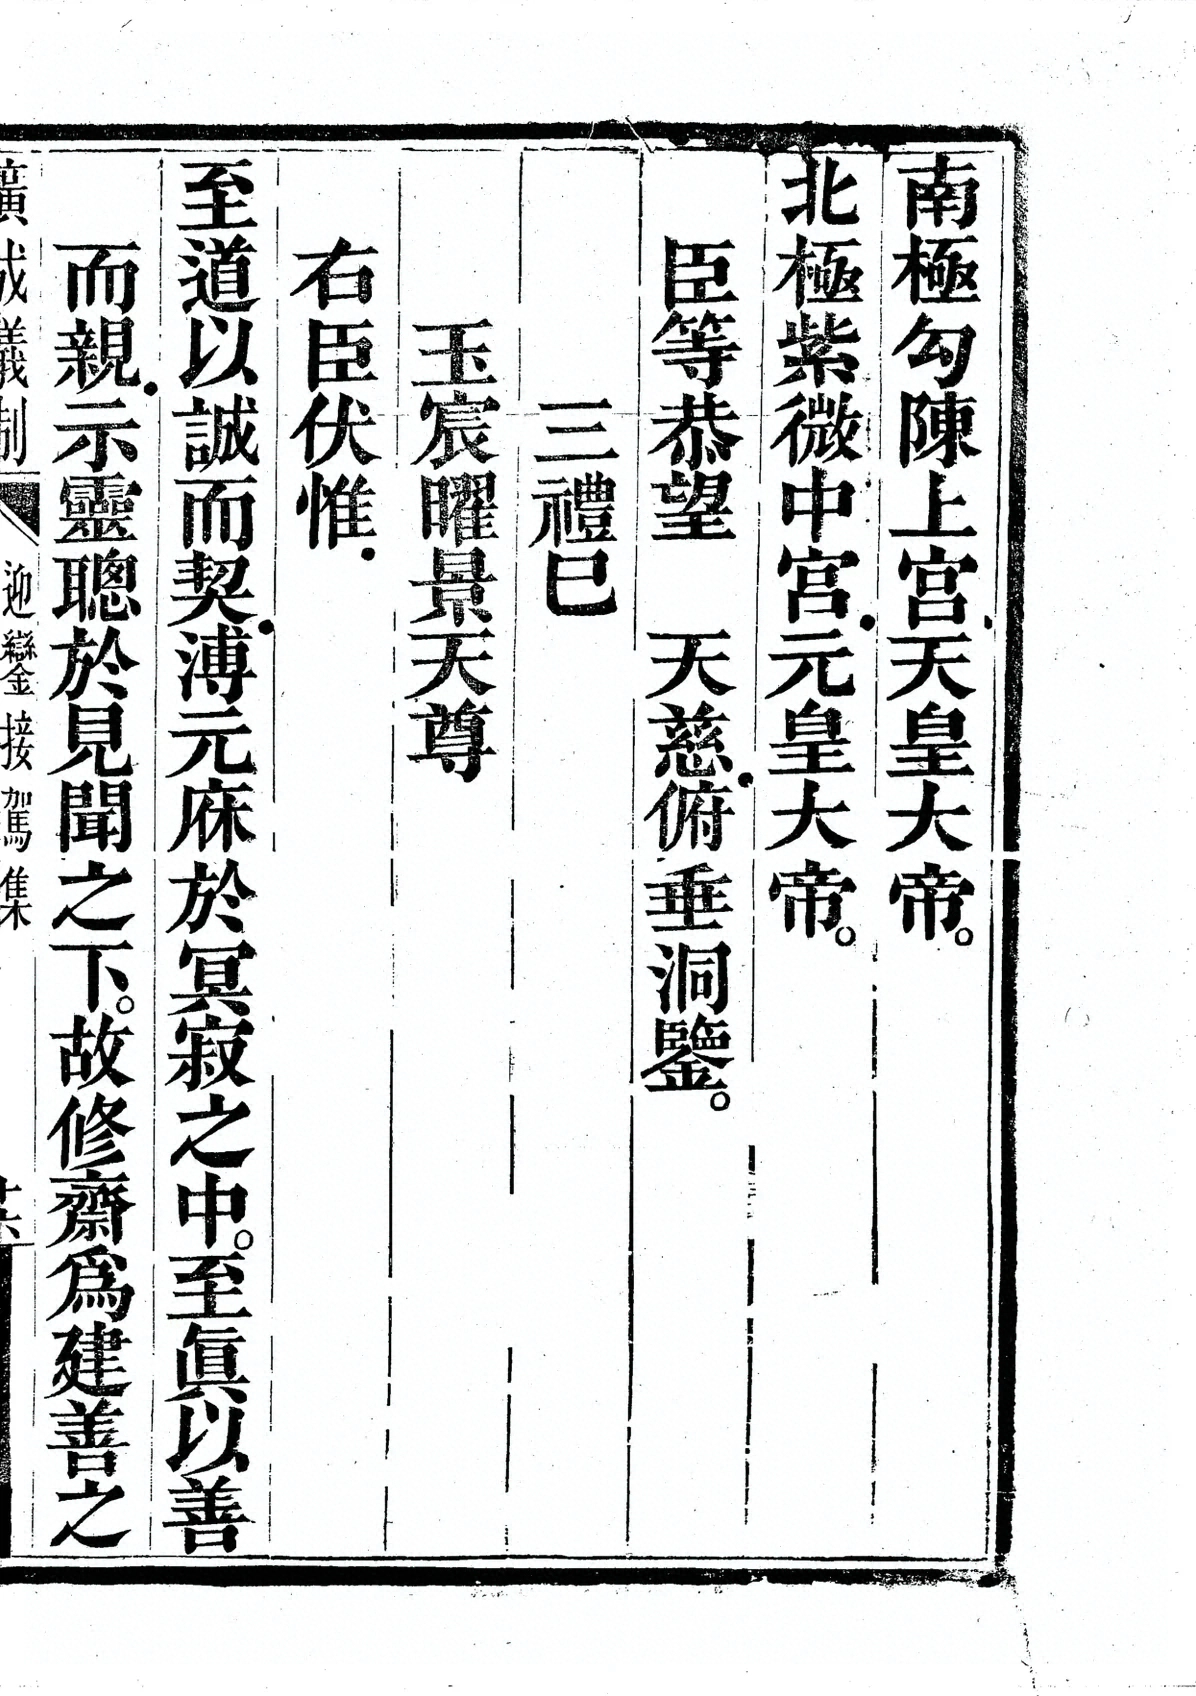 南極勾陳上宮天皇大帝。
北極紫微中宮元皇大帝。
臣等恭望　天慈俯垂洞鑒。
三禮巳
玉宸曜景天尊
右臣伏惟
至道以誠而契溥元庥於冥寂之中。至眞以善
而親示靈聰於見聞之下。故修齋爲建善之
廣成儀制　迎鑾接駕集